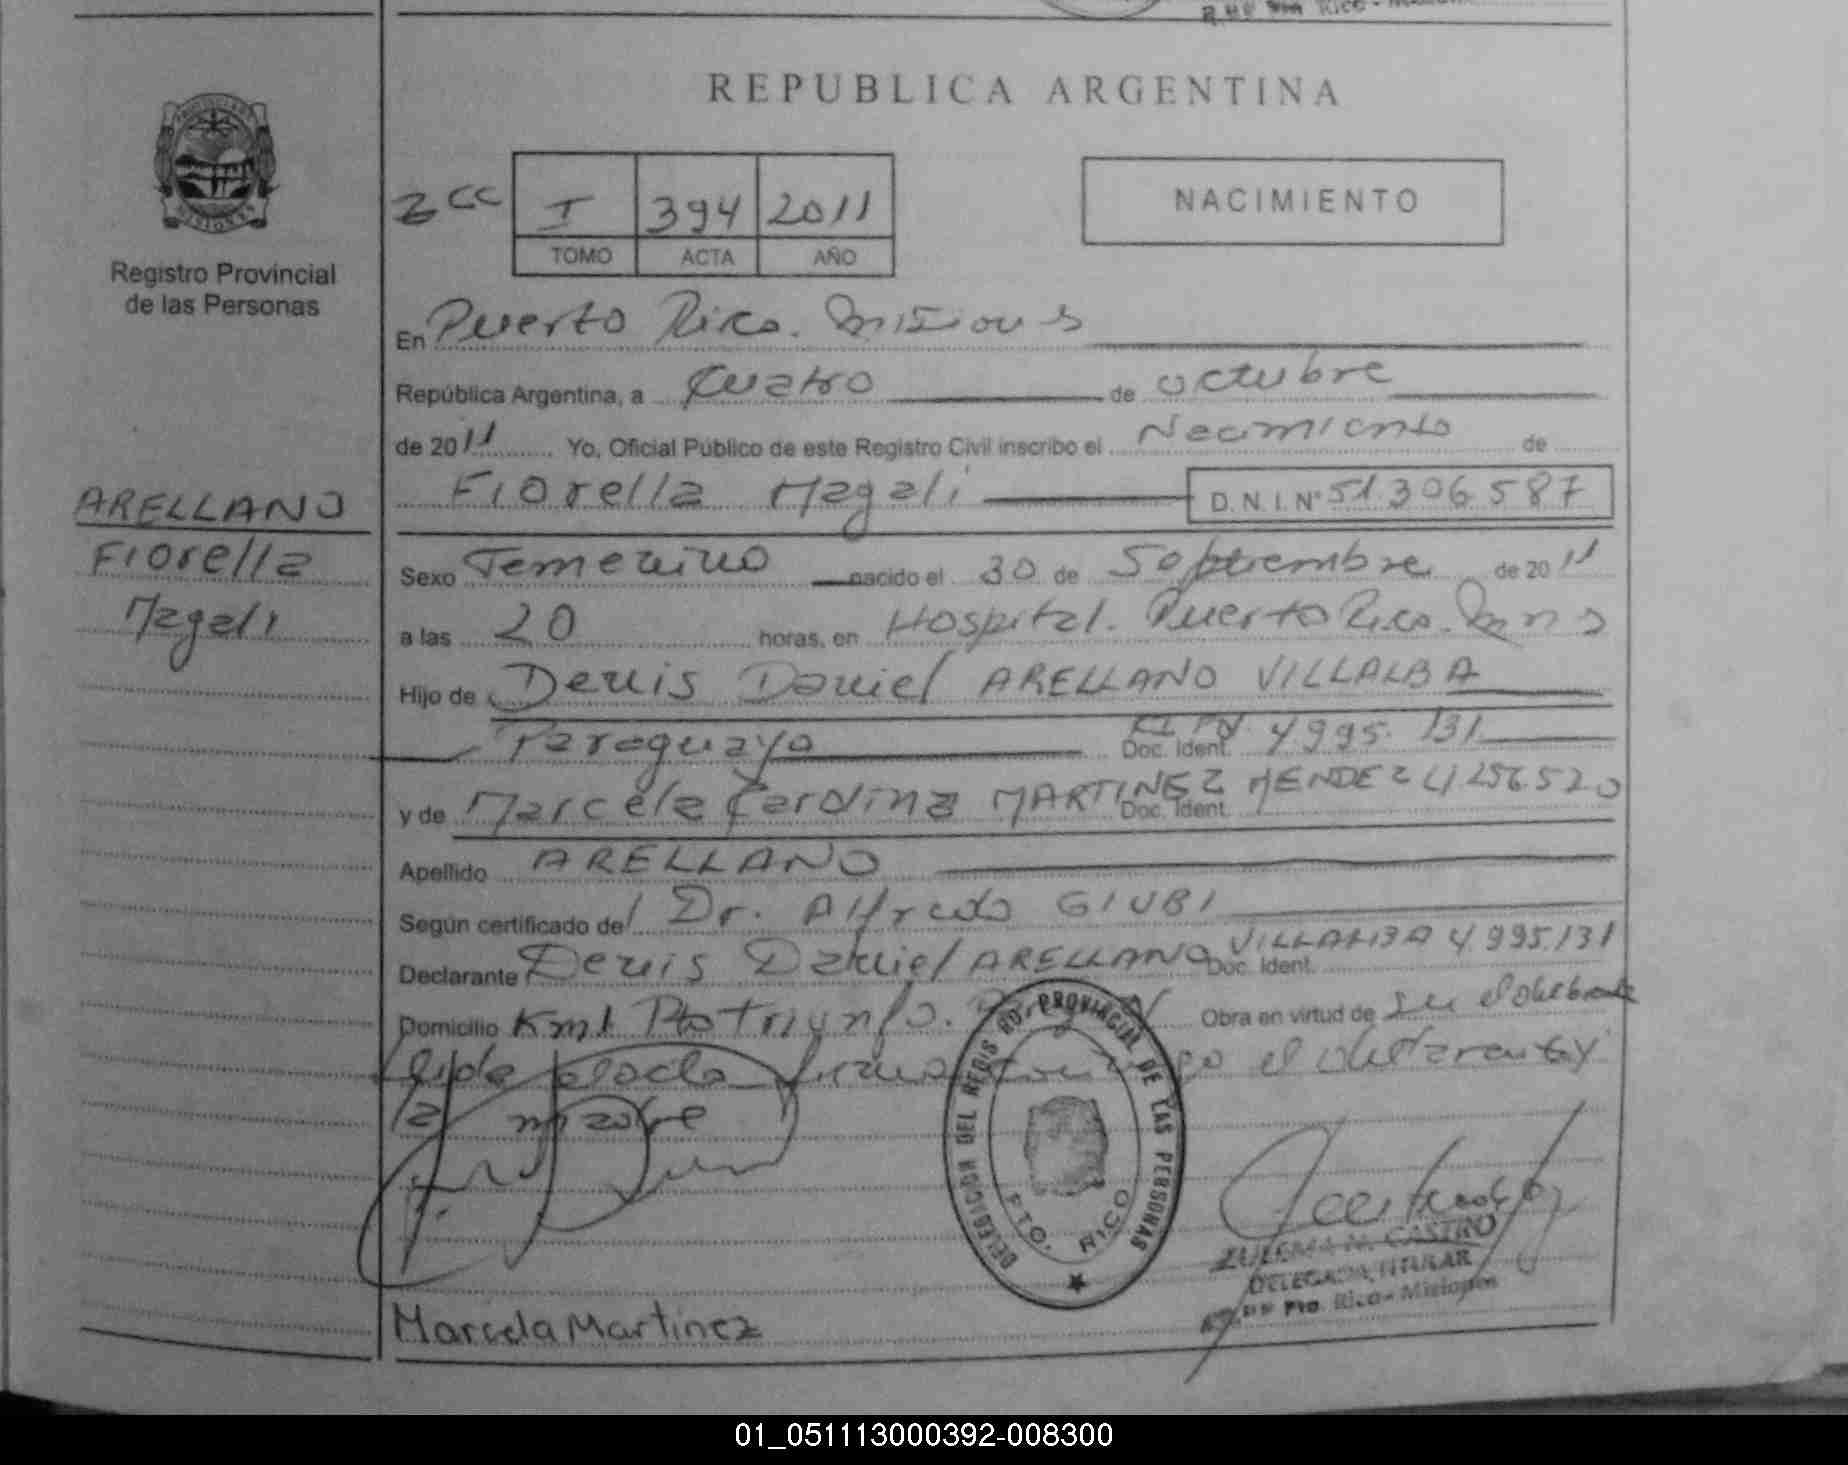 Pto Rico -
REPUBLICA ARGENTINA
PROVINCIA
MISIONES
Registro Provincial
de las Personas
I 394 2011
TOMO ACTA AÑO
NACIMIENTO
En Puerto Rico. Misiones
República Argentina, a Cuatro de octubre
de 2011 Yo, Oficial Público de este Registro Civil inscribo el Nacimiento de
Fiorella Magali D.N.I.N° 51.306.587
ARELLANO
Fiorella
Magali
Sexo Femenino nacido el 30 de Septiembre de 2011
a las 20 horas, en Hospital. Puerto Rico. Mnes
Hijo de Denis Daniel ARELLANO VILLALBA
Paraguayo Doc. Ident. CI PY. 4995.131
y de Marcela Carolina MARTINEZ MENDEZ Doc. Ident. 4256.520
Apellido ARELLANO
Según certificado del Dr. Alfredo GIUBI
Declarante Denis Daniel ARELLANO VILLALBA Doc. Ident. 4.995.131
Domicilio Km1 Pto Triunfo. Obra en virtud de su declarante
Leída el acta firma conmigo el declarante y
la madre
DELEGACION DEL REGISTRO PROVINCIAL DE LAS PERSONAS
PTO. RICO
ZULEMA N. CASTRO
DELEGADA TITULAR
Pto. Rico - Misiones
Marcela Martinez
01_051113000392-008300